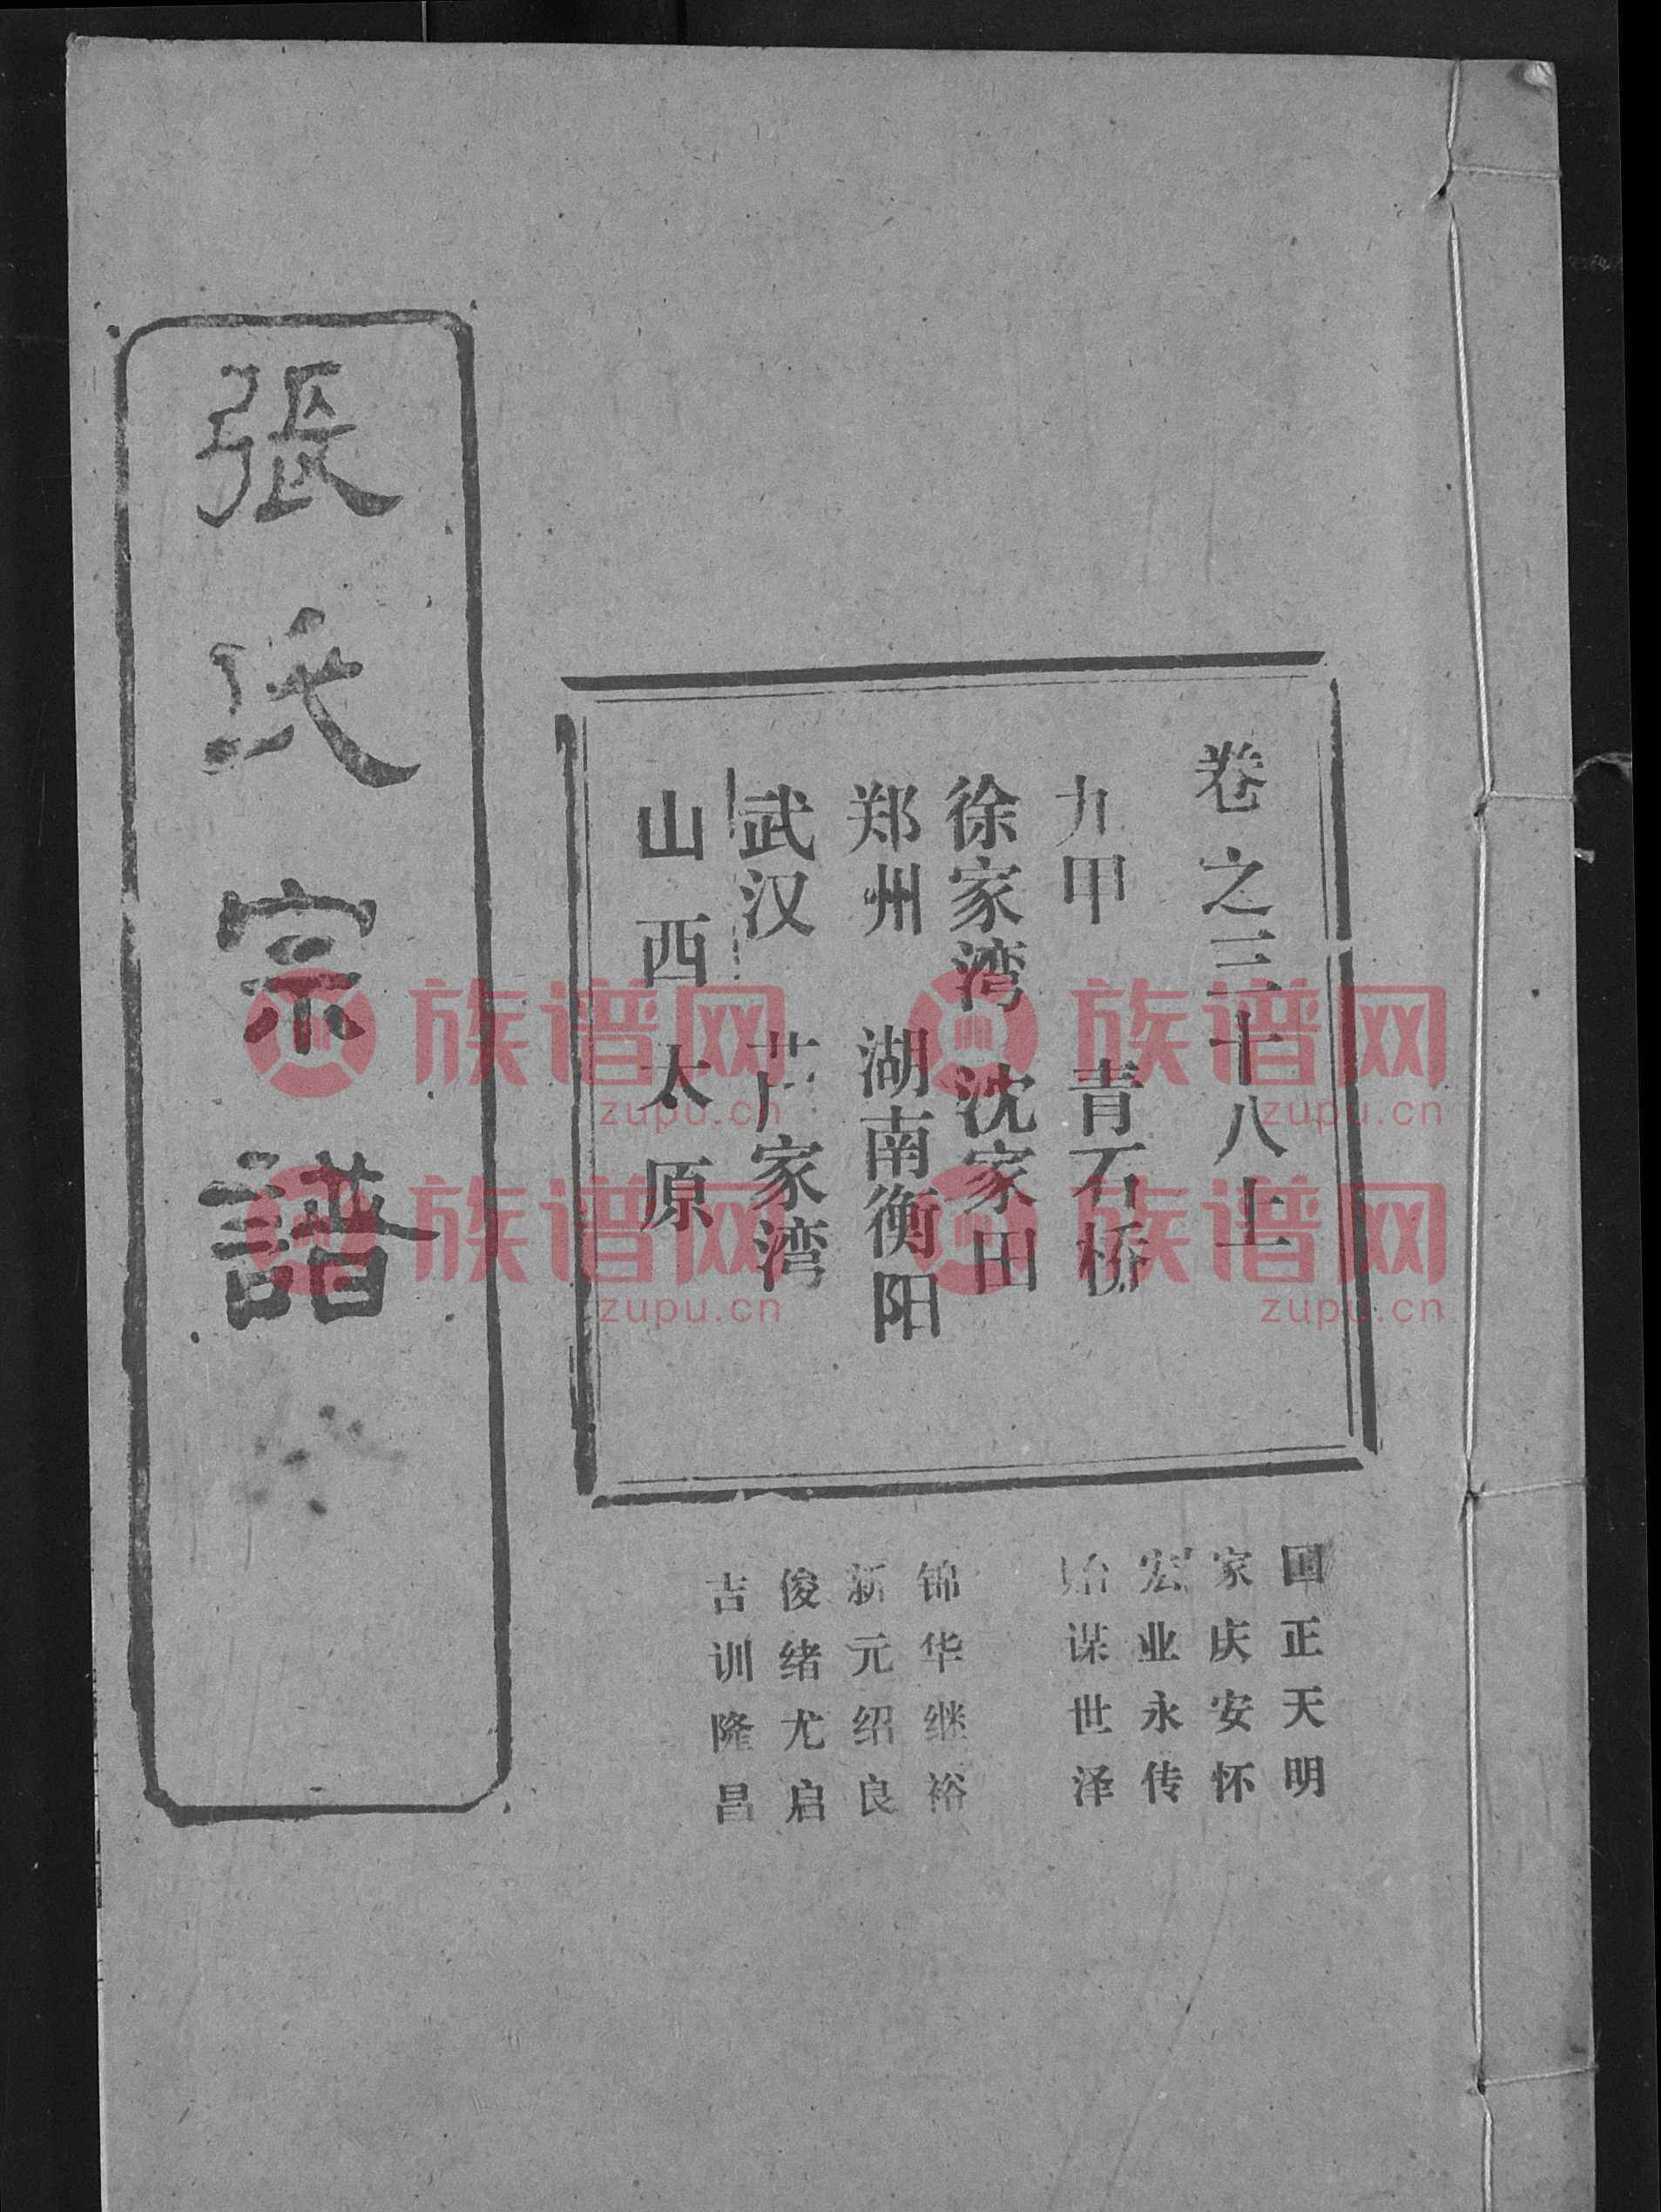 張氏宗譜
卷之三十八上
九甲　青石桥
徐家湾　沈家田
郑州　湖南衡阳
武汉　芦家湾
山西太原
国正天明
家庆安怀
宏业永传
贻谋世泽
锦华继裕
新元绍良
俊绪尤启
吉训隆昌
族谱网
zupu.cn
族谱网
zupu.cn
族谱网
zupu.cn
族谱网
zupu.cn